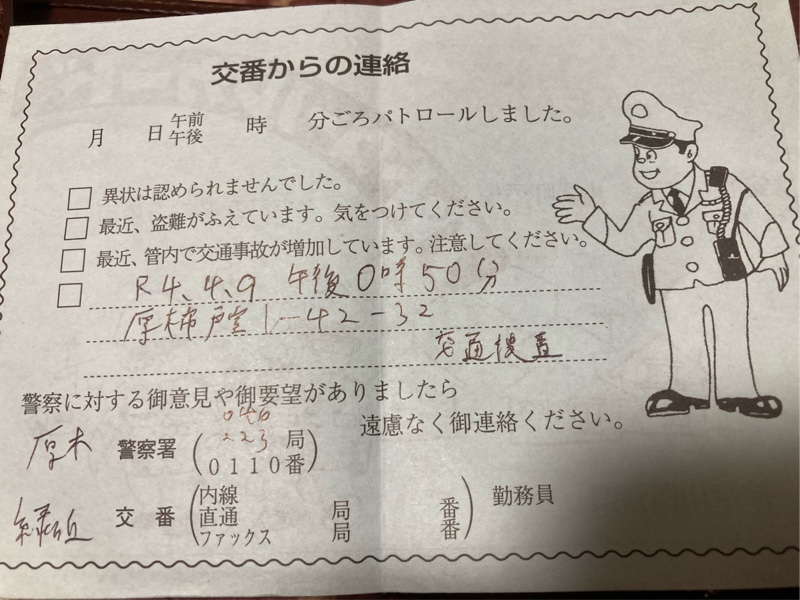 交番からの連絡
月 日 午前 時 分ごろパトロールしました。
午後
□ 異状は認められませんでした。
□ 最近、盗難がふえています。気をつけてください。
□ 最近、管内で交通事故が増加しています。注意してください。
□ R4.4.9 午後0時50分
厚木市戸室1-42-32
交通捜査
警察に対する御意見や御要望がありましたら
遠慮なく御連絡ください。
厚木 警察署 (046 223局 0110番)
緑ヶ丘 交番 (内線
直通 局 番
ファックス 局 番) 勤務員